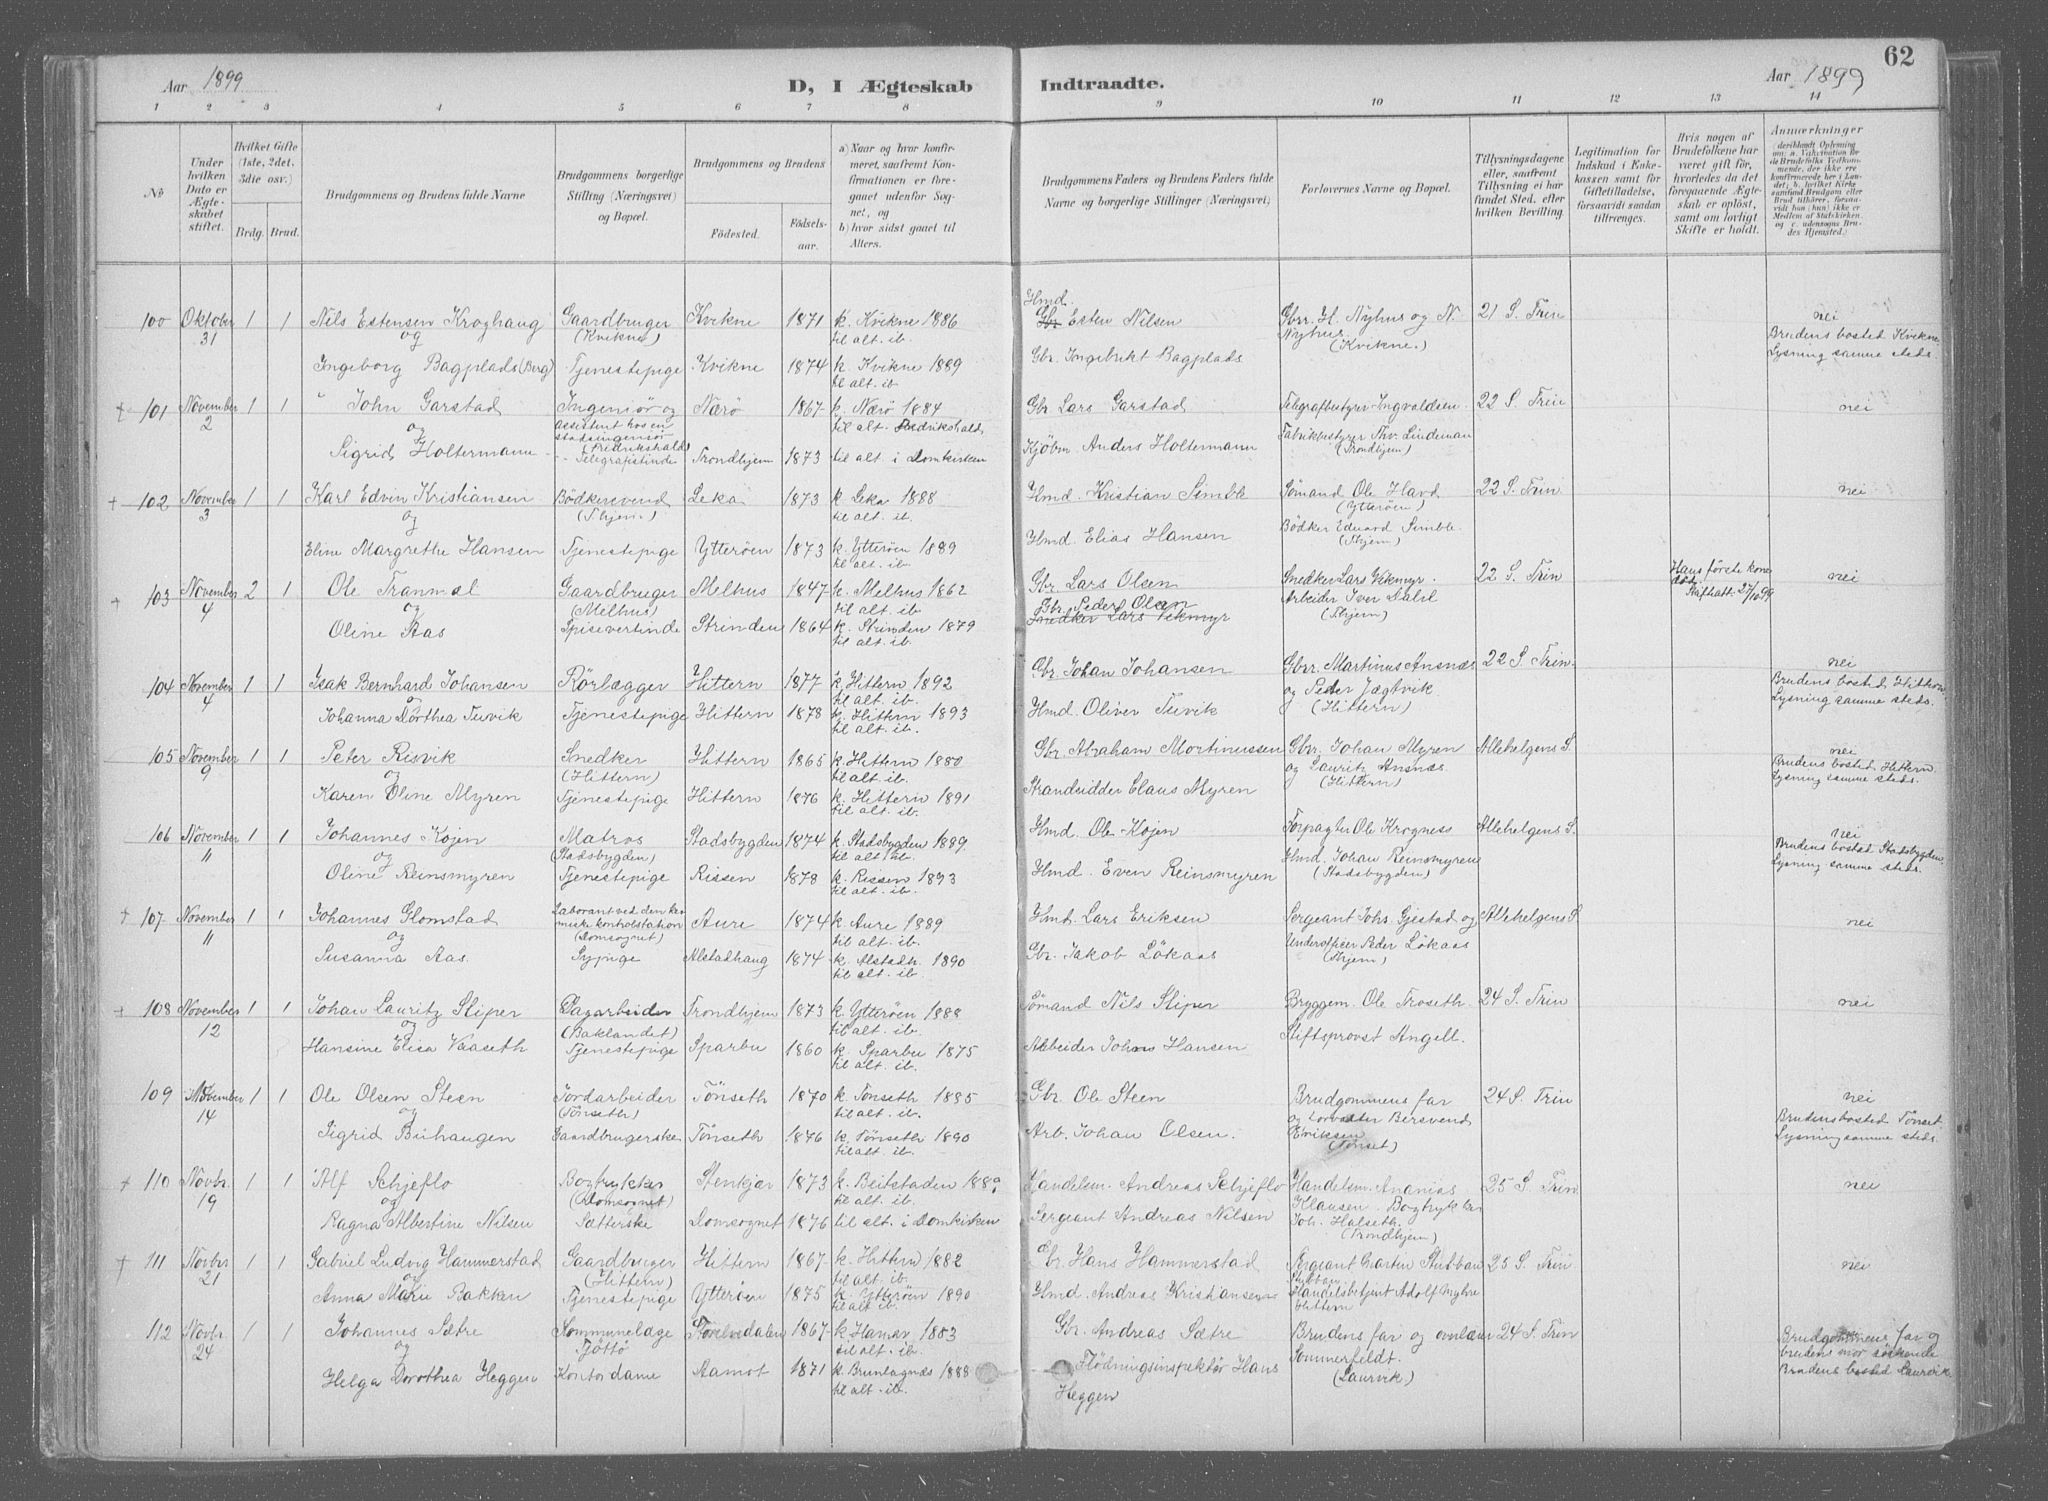 62
Aar 1899
D, I Ægteskab
Indtraadte.
Aar 1899
1 2 3 4 5 6 7 8 9 10 11 12 13 14
No
Under hvilken Dato er Ægteskabet stiftet.
Hvilket Gifte (1ste, 2det, 3die osv.)
Brdg. Brud.
Brudgommens og Brudens fulde Navne
Brudgommens borgerlige Stilling (Næringsvei) og Bopæl.
Brudgommens og Brudens
Fødested. Fødselsaar.
a) Naar og hvor konfirmeret, saafremt Konfirmationen er foregaaet udenfor Sognet, og
b) hvor sidst gaaet til Alters.
Brudgommens Faders og Brudens Faders fulde Navne og borgerlige Stillinger (Næringsvei)
Forlovernes Navne og Bopæl.
Tillysningsdagene eller, saafremt Tillysning ei har fundet Sted, efter hvilken Bevilling.
Legitimation for Indskud i Enkekassen samt for Giftetilladelse, forsaavidt saadan tiltrænges.
Hvis nogen af Brudefolkene har været gift før, hvorledes da det foregaaende Ægteskab er opløst, samt om lovligt Skifte er holdt.
Anmærkninger
(deriblandt Oplysning om: a. Vaksination for de Brudefolks Vedkommende, der ikke ere konfirmerede her i Landet; b. hvilket Kirkesamfund Brudgom eller Brud tilhører, forsaavidt han (hun) ikke er Medlem af Statskirken, og c. udensogns Brudes Hjemsted.)
100 Oktober 31 1 1 Nils Estensen Kroghaug og Gaardbruger (Kvikne) Kvikne 1871 k. Kvikne 1886 til alt. ib. Hmd. Gbr Esten Nilsen Gbrr. H. Nyhus og N. Nyhus (Kvikne.) 21 S. Trin nei
Brudens bosted Kvikne Lysning samme steds.
Ingeborg Bagplads (Berg) Tjenestepige Kvikne 1874 k. Kvikne 1889 til alt. ib. Gbr. Ingebrikt Bagplads
101 November 2 1 1 John Garstad og Ingeniør og assistent hos en stadsingeniør (Fredrikshald) Nærö 1867 k. Nærö 1884 til alt. Fredrikshald Gbr. Lars Garstad Telegrafbestyrer Ingvaldsen 22 S. Trin nei
Sigrid Holtermann Telegrafistinde Trondhjem 1873 til alt. i Domkirken Kjöbm. Anders Holtermann Fabrikbestyrer Thv. Lindeman (Trondhjem)
102 November 3 1 1 Karl Edvin Kristiansen og Bödkersvend (Thjem.) Leka 1873 k. Leka 1888 til alt. ib. Hmd. Kristian Simble Sömand Ole Havd (Ytteröen) 22 S. Trin nei
Eline Margrethe Hansen Tjenestepige Ytteröen 1873 k. Ytteröen 1889 til alt. ib. Hmd. Elias Hansen Bödker Edvard Simble (Thjem)
103 November 4 2 1 Ole Tranmæl og Gaardbruger (Melhus) Melhus 1847 k. Melhus 1862 til alt. ib. Gbr. Lars Olsen Snedker Lars Vikmyr. 22 S. Trin Hans förste kone död. Skifteatt. 27/10 99 nei
Oline Aas Spisevertinde Strinden 1864 k. Strinden 1879 til alt. ib. Gbr. Peder Olsen Snedker Lars Vikmyr Arbeider Iver Dahl (Thjem)
104 November 4 1 1 Isak Bernhard Johansen og Rörlægger Hittern 1877 k. Hittern 1892 til alt. ib. Gbr. Johan Johansen Gbrr. Martinus Ansnæs og Peder Jægtvik (Hittern) 22 S. Trin. nei
Brudens bosted Hittern Lysning samme steds.
Johanna Dorthea Tuvik Tjenestepige Hittern 1878 k. Hittern 1893 til alt. ib. Hmd. Oliver Tuvik
105 November 9 1 1 Peter Risvik og Snedker (Hittern) Hittern 1865 k. Hittern 1880 til alt. ib. Gbr. Abraham Martinussen Gbrr. Johan Myren og Lauritz Ansnæs (Hittern) Allehelgens S. nei
Brudens bosted Hittern Lysning samme steds.
Karen Oline Myren Tjenestepige Hittern 1876 k. Hittern 1891 til alt. ib. Strandsidder Claus Myren
106 November 11 1 1 Johannes Kojen og Matros (Stadsbygden) Stadsbygden 1874 k. Stadsbygden 1889 til alt. ib. Hmd. Ole Kojen Forpagter Ole Krogness Allehelgens S. nei
Brudens bosted Stadsbygden Lysning samme steds.
Oline Reinsmyren Tjenestepige Rissen 1878 k. Rissen 1893 til alt. ib. Hmd. Even Reinsmyren Hmd. Johan Reinsmyren (Stadsbygden)
107 November 11 1 1 Johannes Glomstad og Laborant ved den kemiske kontrolstation (Domsognet) Aure 1874 k. Aure 1889 til alt. ib. Hmd. Lars Eriksen Sergeant Johs. Gjestad og Allehelgens S nei
Susanna Aas Sypige Alstadhaug 1874 k. Alstadh. 1890 til alt. ib. Gbr. Jakob Lökaas Underofficer Peder Lökaas (Thjem)
108 November 12 1 1 Johan Lauritz Stiper og Dagarbeider (Baklandet) Trondhjem 1873 k. Ytteröen 1888 til alt. ib. Sömand Nils Stiper Bryggem. Ole Troseth. 24 S. Trin nei
Hansine Elisa Vaaseth Tjenestepige Sparbu 1860 k. Sparbu 1875 til alt. ib. Arbeider Johns Hansen Stiftsprovst Angell.
109 November 14 1 1 Ole Olsen Steen og Jordarbeider (Tönseth) Tönseth 1870 k. Tönseth 1885 til alt. ib. Gbr. Ole Steen Brudgommens far og Bersvend Eriksen (Tönset) 24 S. Trin nei
Brudens bosted Tönset. Lysning samme steds.
Sigrid Buhaugen Gaardbrugerske Tönseth 1876 k. Tönseth 1890 til alt. ib. Arb. Johan Olsen.
110 Novbr. 19 1 1 Alf Schjeflo og Bogtrykker (Domsognet) Stenkjær 1873 k. Beitstaden til alt. ib. Handelsm. Andreas Schjeflo Handelsm. Ananias Klausen. Bogtrykker Joh. Halseth. (Trondhjem) 25 S. Trin nei
Ragna Albertine Nilsen Sætterske Domsognet 1876 til alt. i Domkirken Sergeant Andreas Nilsen
111 Novbr 21 1 1 Gabriel Ludvig Hammerstad og Gaardbruger (Hittern) Hittern 1867 k. Hittern 1882 til alt. ib. Gbr. Hans Hammerstad Sergeant Martin Stubban Stubban 25 S. Trin nei
Anna Marie Bakken Tjenestepige Ytteröen 1875 k. Ytteröen 1890 til alt. ib. Hmd. Andreas Kristiansen Handelsbetjent Adolf Myhre Hittern
112 Novbr. 24 1 1 Johannes Sætre og Kommunelæge Tjöttö Storelvedalen 1867 k. Hamar 1883 til alt. ib. Gbr. Andreas Sætre Brudens far og Sommerfeldt. (Laurvik) 24 S. Trin
Brudgommens far og brudens mor söskende Brudens bosted Laurvik.
Helga Dorothea Heggen Kontordame Aamot 1871 k. Bruntagnæs 1888 til alt. ib. Flödningsinspektör Hans Heggen